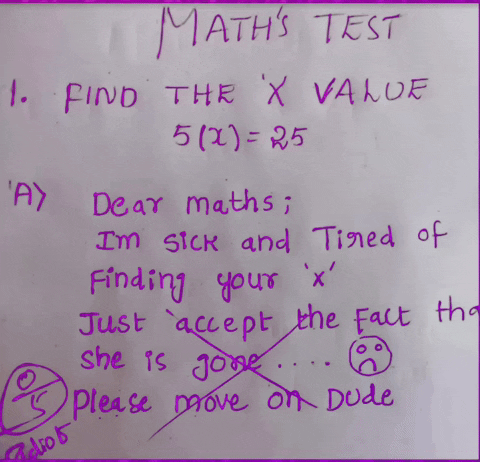 MATH'S TEST
1. FIND THE 'X VALUE
5(x)=25
A) Dear maths;
Im sick and Tired of
Finding your 'x'
Just 'accept the Fact tha
she is gone....
please move on Dude
0/5